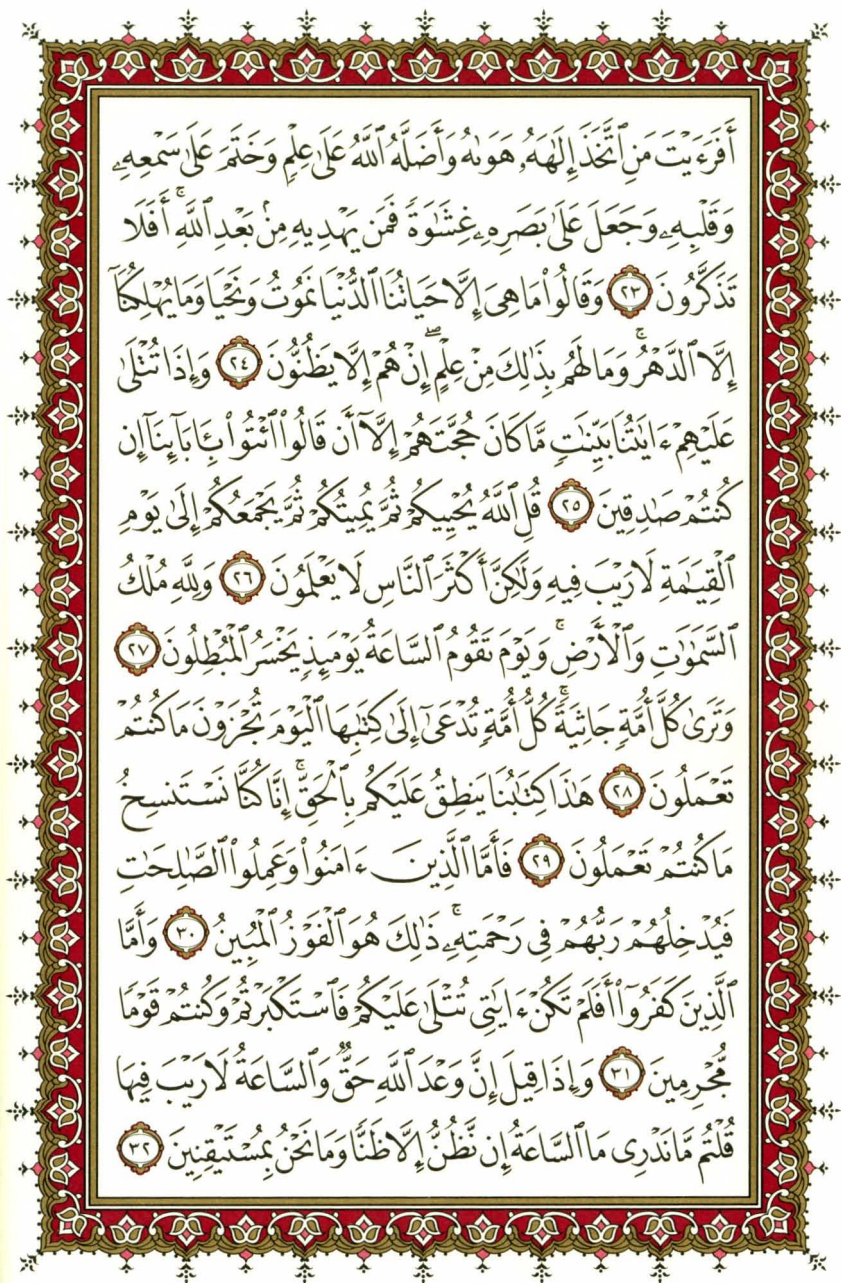 أَفَرَءَيْتَ مَنِ ٱتَّخَذَ إِلَٰهَهُۥ هَوَىٰهُ وَأَضَلَّهُ ٱللَّهُ عَلَىٰ عِلْمٍ وَخَتَمَ عَلَىٰ سَمْعِهِۦ
وَقَلْبِهِۦ وَجَعَلَ عَلَىٰ بَصَرِهِۦ غِشَٰوَةً فَمَن يَهْدِيهِ مِنۢ بَعْدِ ٱللَّهِ ۚ أَفَلَا
تَذَكَّرُونَ ٢٣ وَقَالُوا۟ مَا هِىَ إِلَّا حَيَاتُنَا ٱلدُّنْيَا نَمُوتُ وَنَحْيَا وَمَا يُهْلِكُنَآ
إِلَّا ٱلدَّهْرُ ۚ وَمَا لَهُم بِذَٰلِكَ مِنْ عِلْمٍ ۖ إِنْ هُمْ إِلَّا يَظُنُّونَ ٢٤ وَإِذَا تُتْلَىٰ
عَلَيْهِمْ ءَايَٰتُنَا بَيِّنَٰتٍ مَّا كَانَ حُجَّتَهُمْ إِلَّآ أَن قَالُوا۟ ٱئْتُوا۟ بِـَٔابَآئِنَآ إِن
كُنتُمْ صَٰدِقِينَ ٢٥ قُلِ ٱللَّهُ يُحْيِيكُمْ ثُمَّ يُمِيتُكُمْ ثُمَّ يَجْمَعُكُمْ إِلَىٰ يَوْمِ
ٱلْقِيَٰمَةِ لَا رَيْبَ فِيهِ وَلَٰكِنَّ أَكْثَرَ ٱلنَّاسِ لَا يَعْلَمُونَ ٢٦ وَلِلَّهِ مُلْكُ
ٱلسَّمَٰوَٰتِ وَٱلْأَرْضِ ۚ وَيَوْمَ تَقُومُ ٱلسَّاعَةُ يَوْمَئِذٍ يَخْسَرُ ٱلْمُبْطِلُونَ ٢٧
وَتَرَىٰ كُلَّ أُمَّةٍ جَاثِيَةً ۚ كُلُّ أُمَّةٍ تُدْعَىٰٓ إِلَىٰ كِتَٰبِهَا ٱلْيَوْمَ تُجْزَوْنَ مَا كُنتُمْ
تَعْمَلُونَ ٢٨ هَٰذَا كِتَٰبُنَا يَنطِقُ عَلَيْكُم بِٱلْحَقِّ ۚ إِنَّا كُنَّا نَسْتَنسِخُ
مَا كُنتُمْ تَعْمَلُونَ ٢٩ فَأَمَّا ٱلَّذِينَ ءَامَنُوا۟ وَعَمِلُوا۟ ٱلصَّٰلِحَٰتِ
فَيُدْخِلُهُمْ رَبُّهُمْ فِى رَحْمَتِهِۦ ۚ ذَٰلِكَ هُوَ ٱلْفَوْزُ ٱلْمُبِينُ ٣٠ وَأَمَّا
ٱلَّذِينَ كَفَرُوٓا۟ أَفَلَمْ تَكُنْ ءَايَٰتِى تُتْلَىٰ عَلَيْكُمْ فَٱسْتَكْبَرْتُمْ وَكُنتُمْ قَوْمًا
مُّجْرِمِينَ ٣١ وَإِذَا قِيلَ إِنَّ وَعْدَ ٱللَّهِ حَقٌّ وَٱلسَّاعَةُ لَا رَيْبَ فِيهَا
قُلْتُم مَّا نَدْرِى مَا ٱلسَّاعَةُ إِن نَّظُنُّ إِلَّا ظَنًّا وَمَا نَحْنُ بِمُسْتَيْقِنِينَ ٣٢